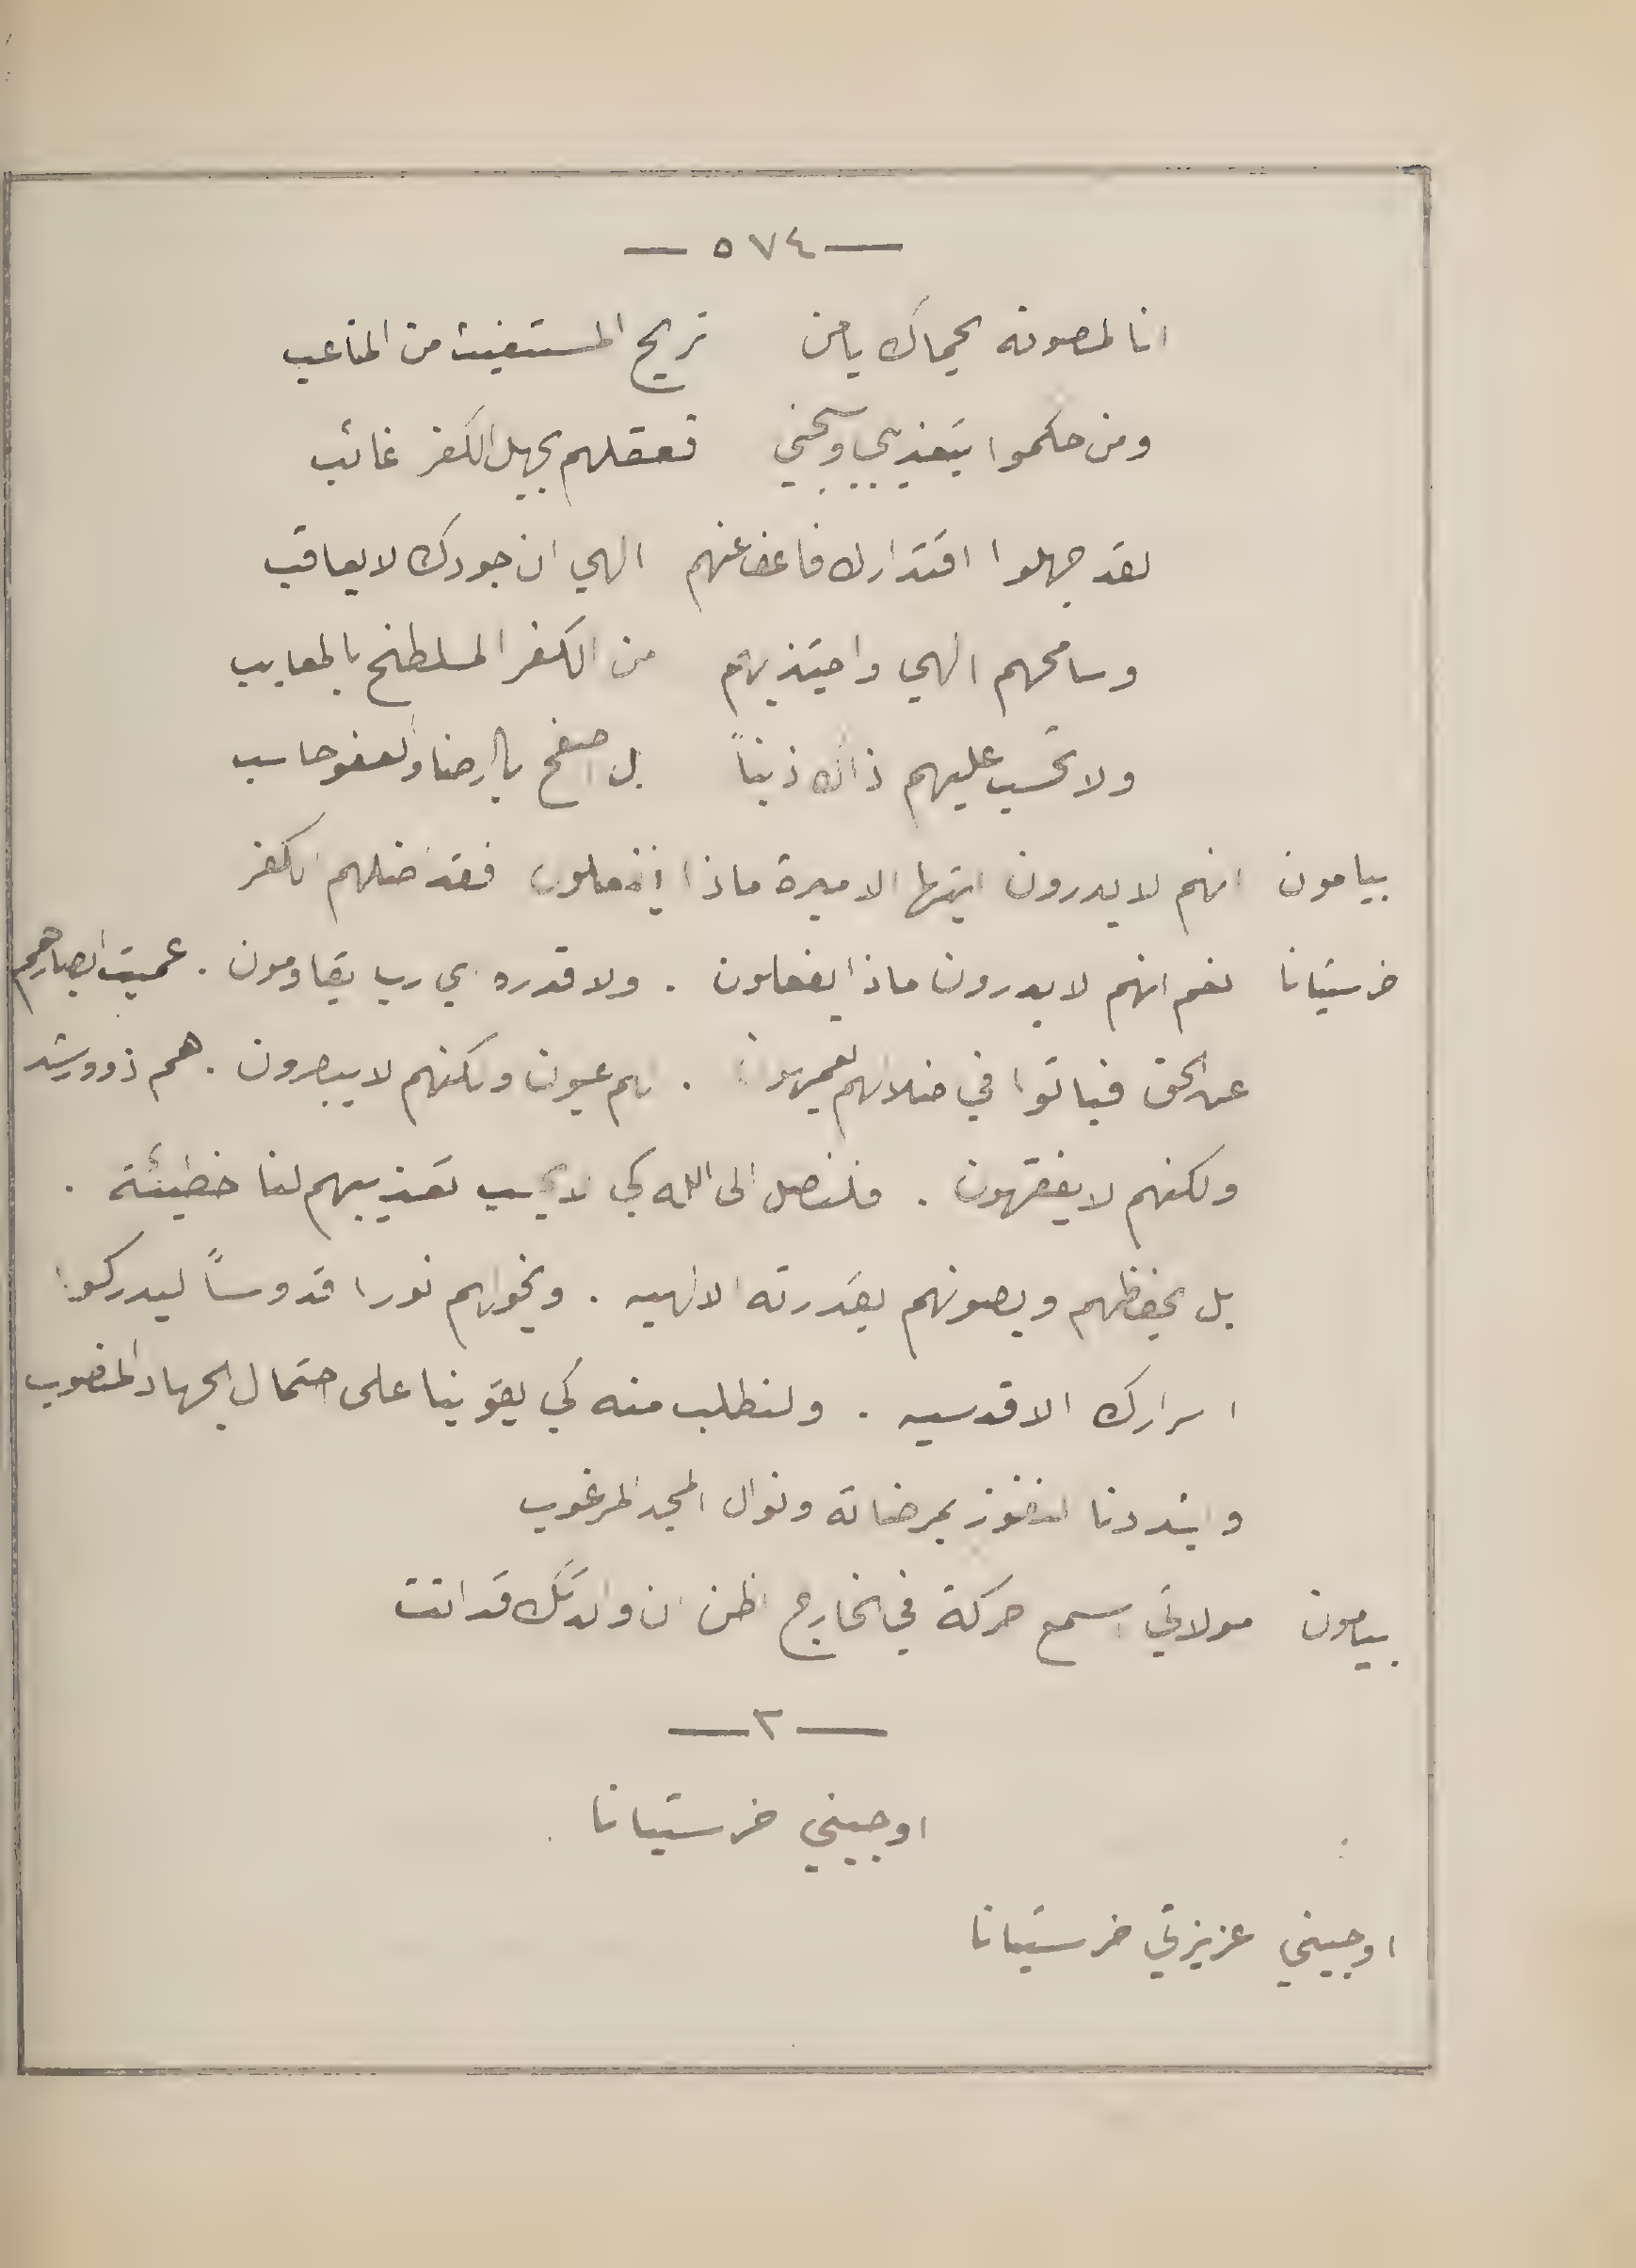 — ٥٧٤ —
انا لمصونة بحماك يا من تريح المستغيث من المتاعب
ومن حكموا بتعذيبي وسجني فعقلهم بجهل الكفر غائب
لقد جهلوا اقتدارك فاعف عنهم الهي ان جودك لا يعاقب
وسامحهم الهي واجتذبهم من الكفر الملطخ بالمعايب
ولا تحسب عليهم ذاك ذنباً بل اصفح بالرضا والعفو حاسب
بيامون انهم لا يدرون ايتها الاميرة ماذا يفعلون فقد اضلهم الكفر
خرستيانا نعم انهم لا يدرون ماذا يفعلون . ولا قدرة اي رب يقاومون . عميت ابصارهم
عن الحق فباتوا في ضلالهم يعمهون . لهم عيون ولكنهم لا يبصرون . هم ذوو رشد
ولكنهم لا يفقهون . فلنصل الى الله كي لا يحسب تعذيبهم لنا خطيئة .
بل يحفظهم ويصونهم بقدرته الالهيه . ويخولهم نورا قدوساً ليدركوا
اسرارك الاقدسيه . ولنطلب منه كي يقوينا على احتمال الجهاد المنصوب
ويشددنا لنفوز بمرضاته ونوال المجد المرغوب
بيامون مولاتي اسمع حركة في الخارج اظن ان والدتك قد اتت
— ٣ —
اوجيني خرستيانا
اوجيني عزيزتي خرستيانا